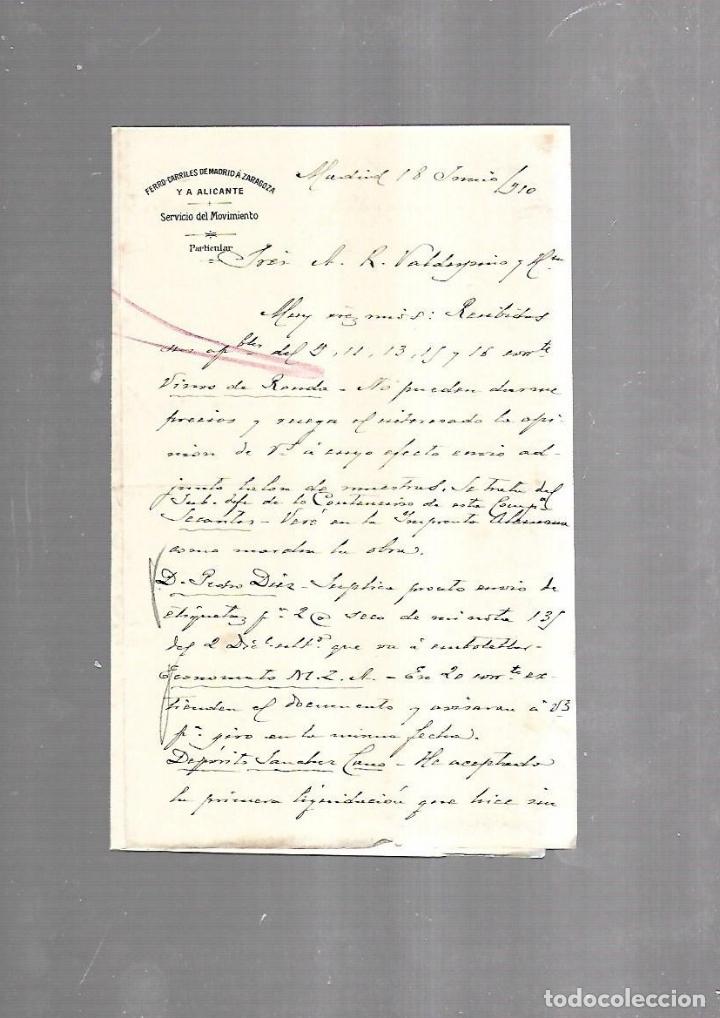 FERRO-CARRILES DE MADRID Á ZARAGOZA
Y A ALICANTE
Servicio del Movimiento
Particular
Madrid 18 Junio 1910
Sres. A. R. Valdespino y Hno
Muy Srs mios: Recibidas
sus apbles del 9, 11, 13, 15 y 16 corrte
Vinos de Ronda - No pueden darme
precios y ruega el interesado la opi-
nion de Vs á cuyo efecto envio ad-
junto talon de muestras. Se trata del
Sub. Jefe de lo Contencioso de esta Compª
Secantes - Veré en la Imprenta Alemana
como marcha la obra.
D. Pedro Diez - Suplica pronto envio de
etiquetas pª 2 @ seco de mi nota 135
del 2 Dicbe ultº que va á embotellar -
Economato M.Z.A. - En 20 corrte ex-
tienden el documento y avisaran á Vs
pª giro en la misma fecha.
Depósito Sanchez Cano - He aceptado
la primera liquidación que hice sin
todocoleccion.net